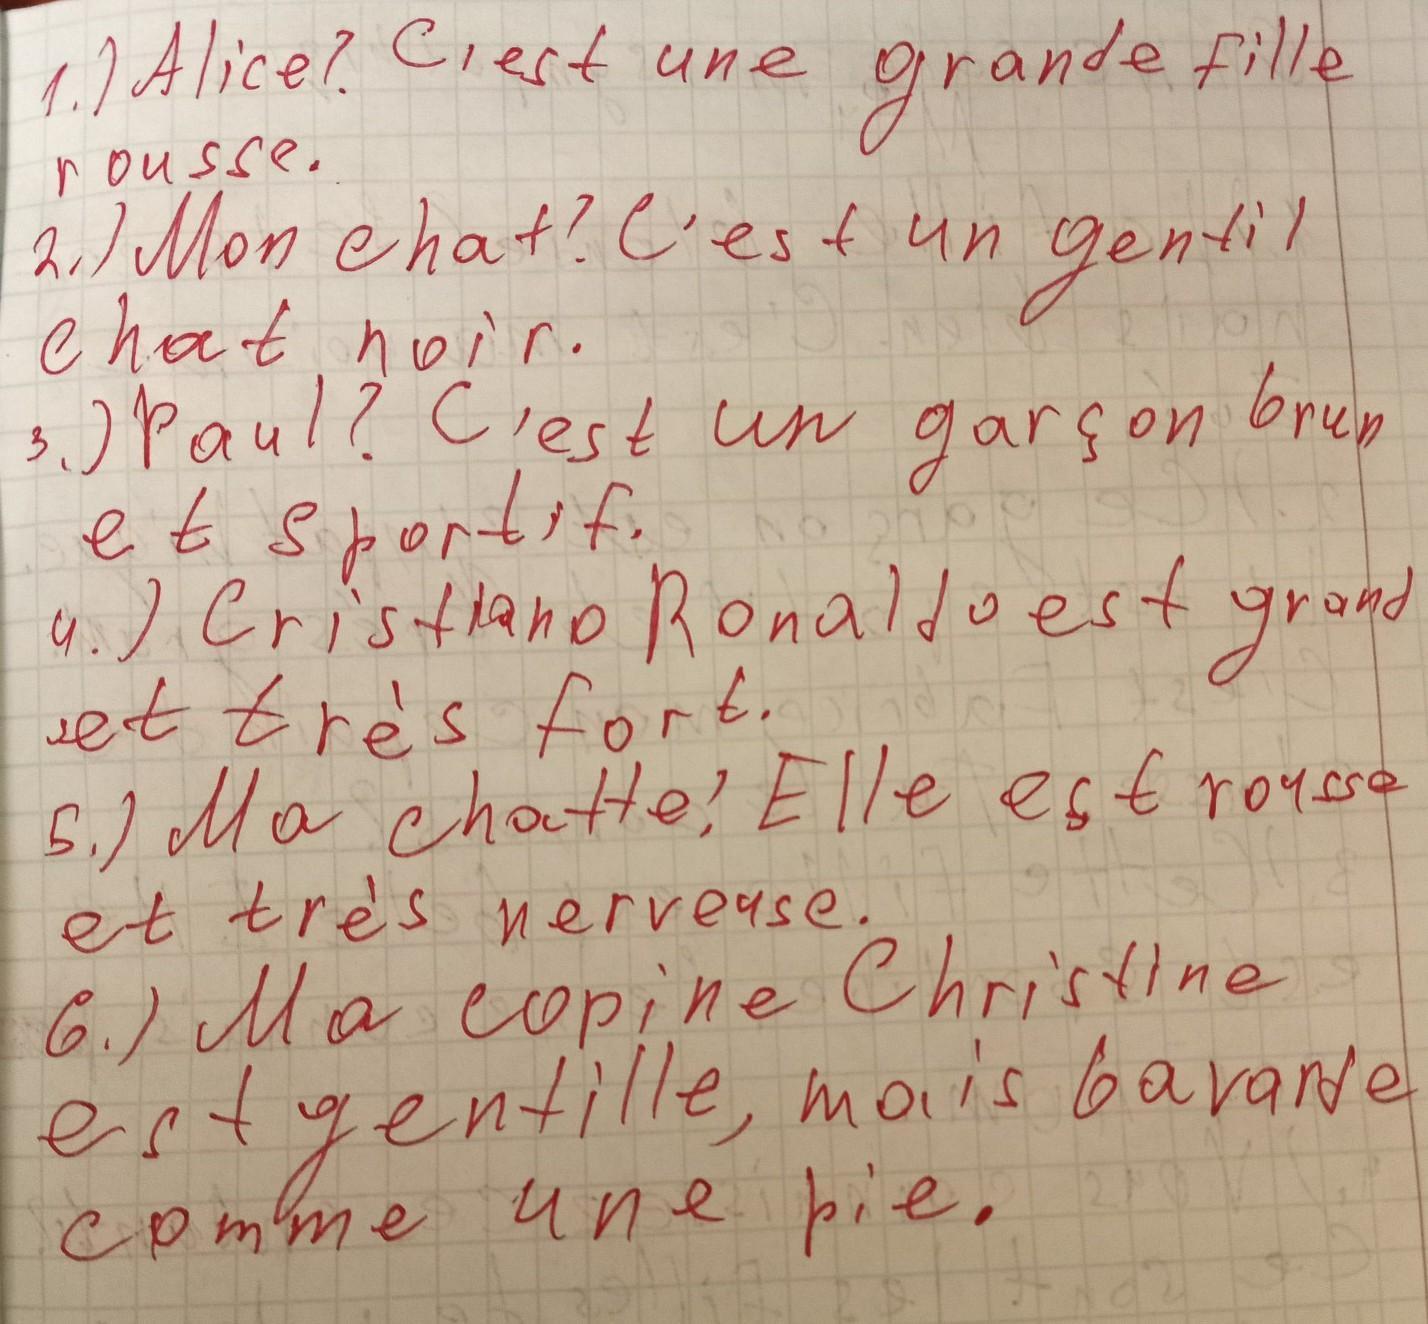 1.) Alice? C'est une grande fille
rousse.
2.) Mon chat? C'est un gentil
chat noir.
3.) Paul? C'est un garçon brun
et sportif.
4.) Cristiano Ronaldo est grand
et très fort.
5.) Ma chatte? Elle est rousse
et très nerveuse.
6.) Ma copine Christine
est gentille, mais bavarde
comme une pie.